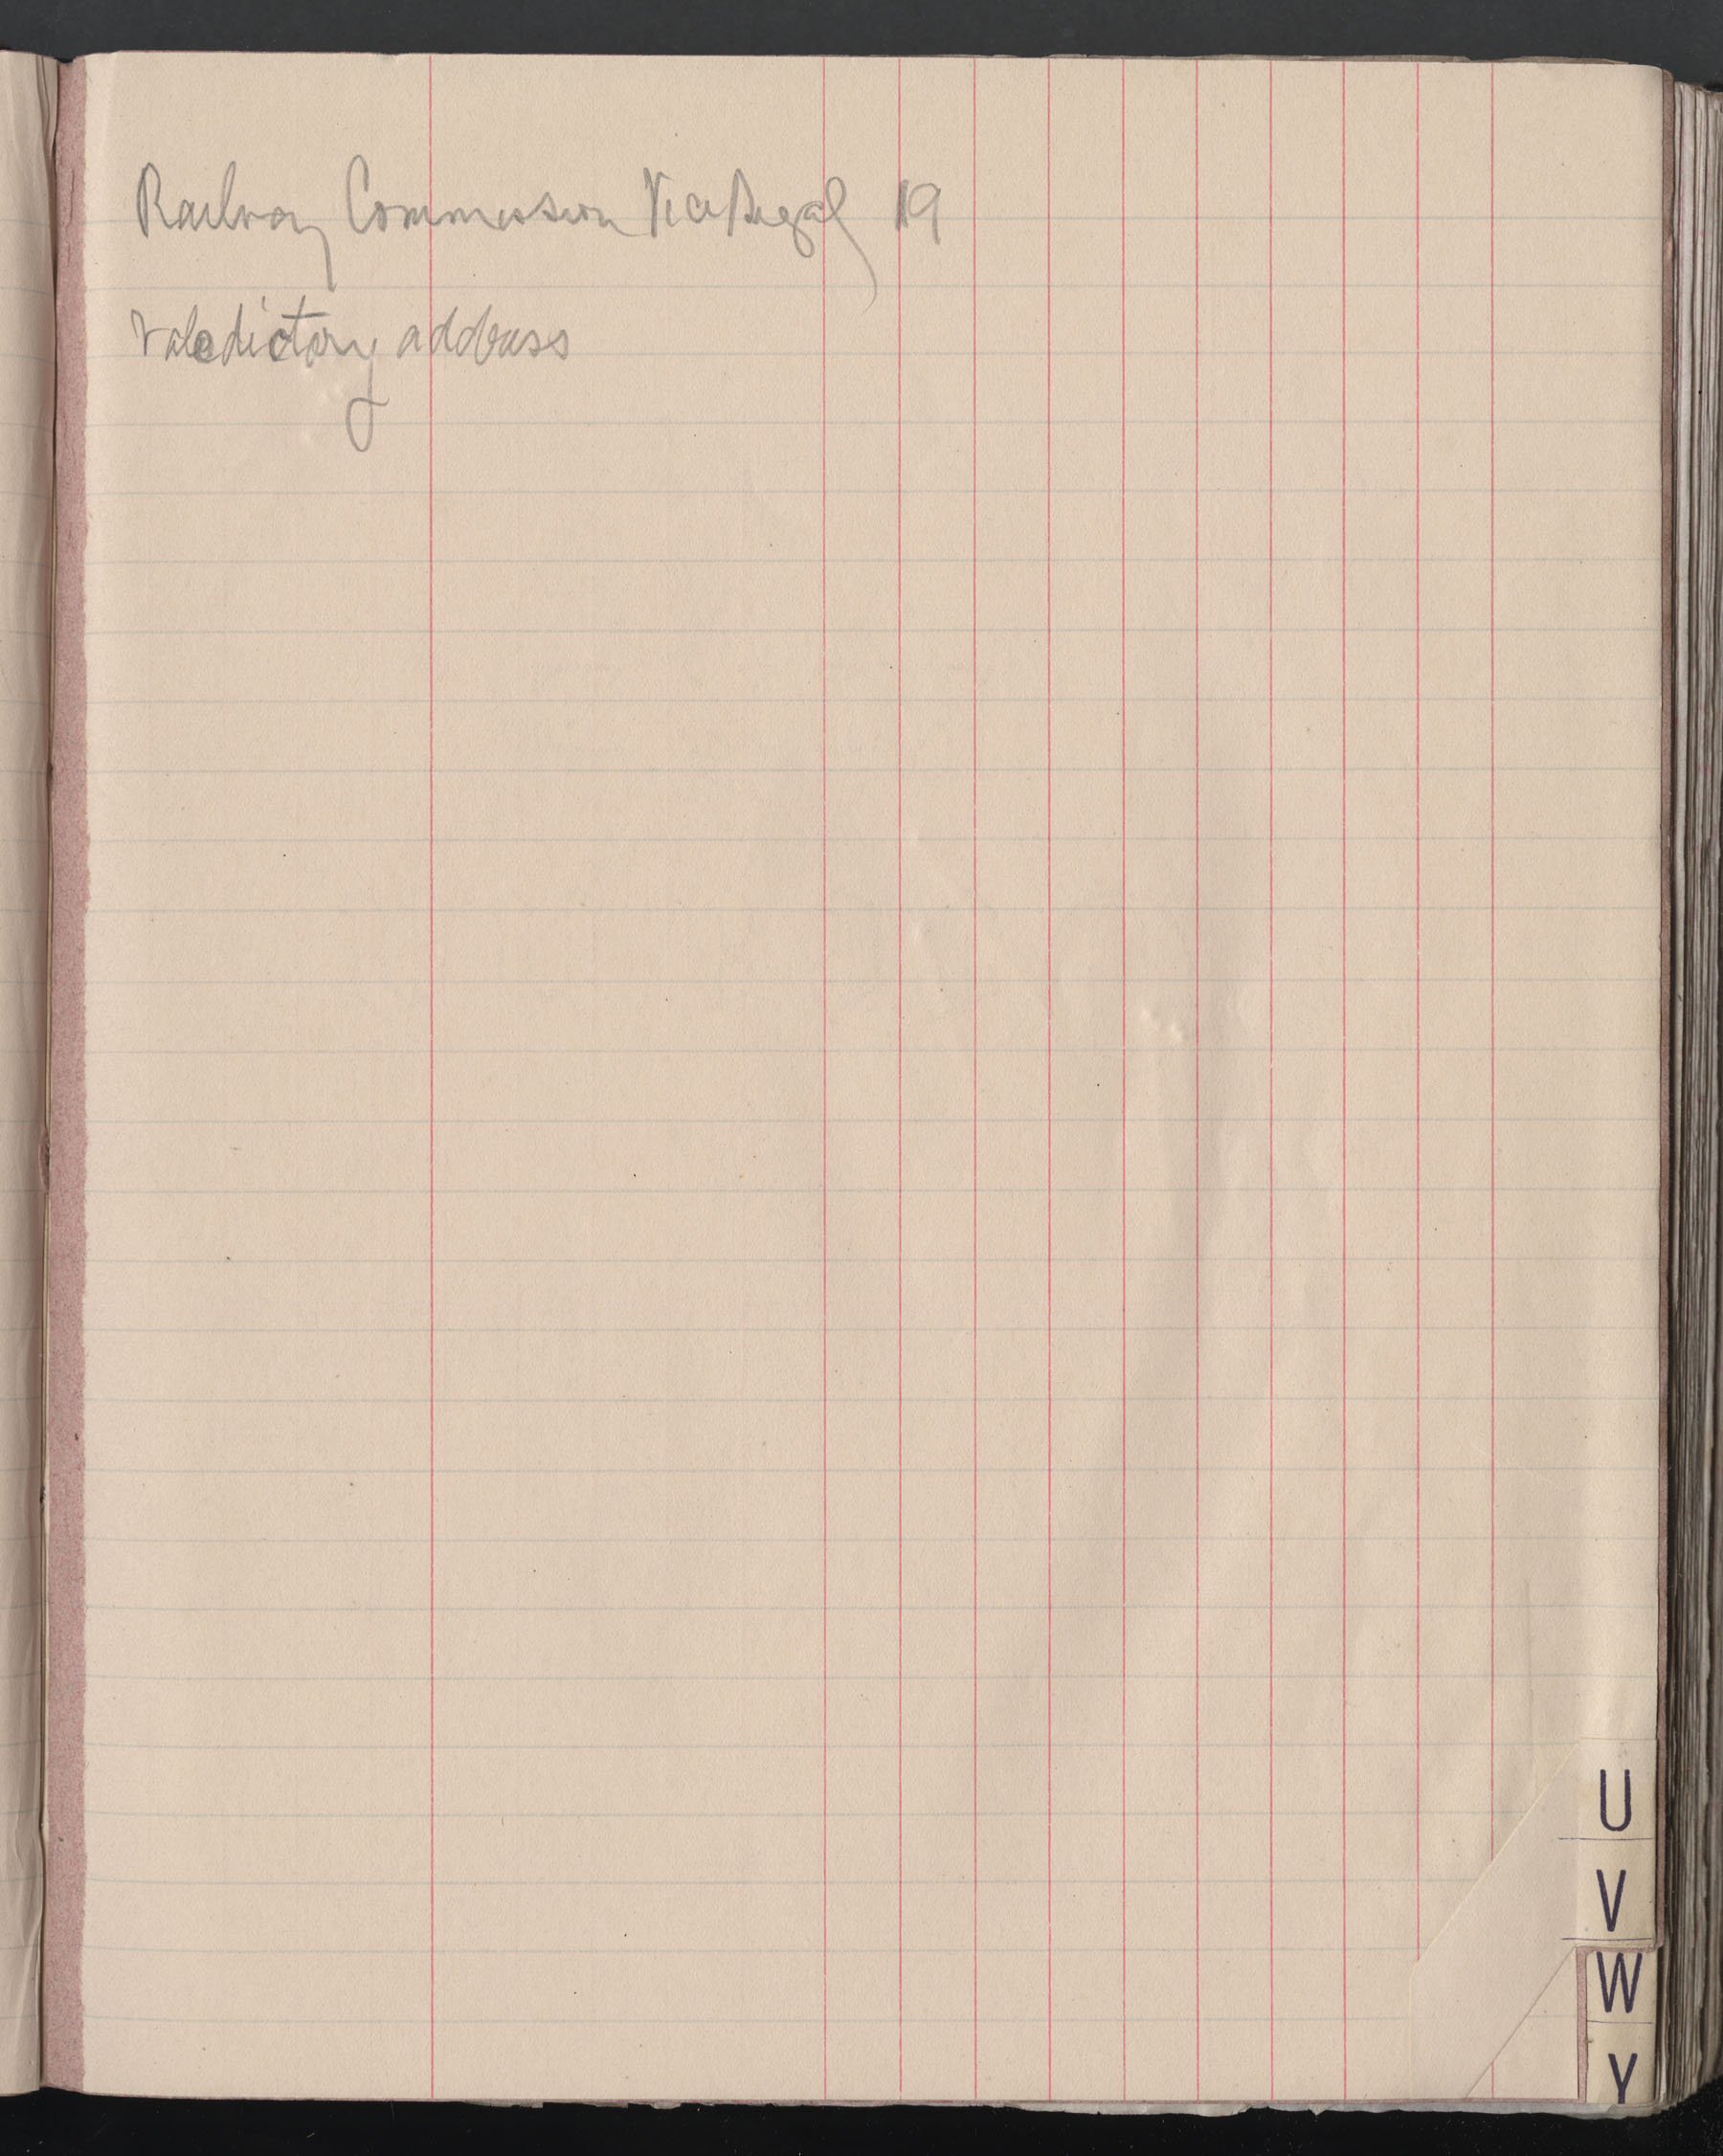 Railway Commission ViceRegal 19
Valedictory address
U
V
W
Y